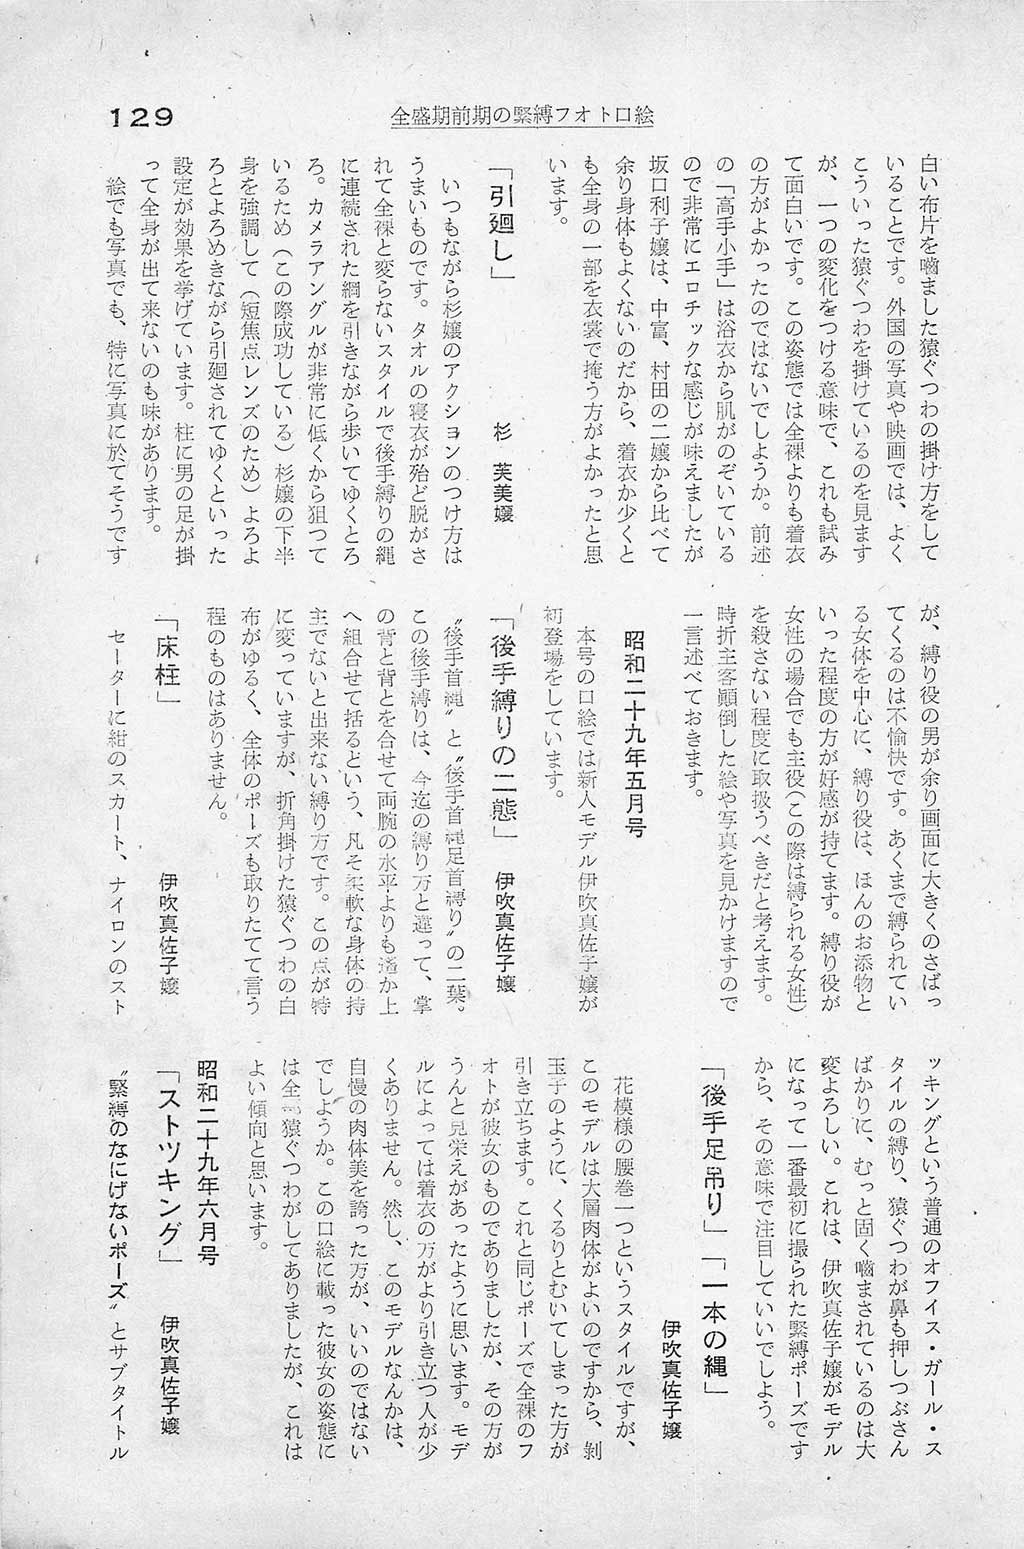 129
全盛期前期の緊縛フオト口絵
白い布片を噛ました猿ぐつわの掛け方をして
いることです。外国の写真や映画では、よく
こういった猿ぐつわを掛けているのを見ます
が、一つの変化をつける意味で、これも試み
て面白いです。この姿態では全裸よりも着衣
の方がよかったのではないでしようか。前述
の「高手小手」は浴衣から肌がのぞいている
ので非常にエロチックな感じが味えましたが
坂口利子嬢は、中富、村田の二嬢から比べて
余り身体もよくないのだから、着衣か少くと
も全身の一部を衣裳で掩う方がよかったと思
います。
「引廻し」　杉　芙美嬢
いつもながら杉嬢のアクションのつけ方は
うまいものです。タオルの寝衣が殆ど脱がさ
れて全裸と変らないスタイルで後手縛りの縄
に連続された綱を引きながら歩いてゆくとろ
ろ。カメラアングルが非常に低くから狙って
いるため（この際成功している）杉嬢の下半
身を強調して（短焦点レンズのため）よろよ
ろとよろめきながら引廻されてゆくといった
設定が効果を挙げています。柱に男の足が掛
って全身が出て来ないのも味があります。
絵でも写真でも、特に写真に於てそうです
が、縛り役の男が余り画面に大きくのさばっ
てくるのは不愉快です。あくまで縛られてい
る女体を中心に、縛り役は、ほんのお添物と
いった程度の方が好感が持てます。縛り役が
女性の場合でも主役（この際は縛られる女性）
を殺さない程度に取扱うべきだと考えます。
時折主客顚倒した絵や写真を見かけますので
一言述べておきます。
昭和二十九年五月号
本号の口絵では新人モデル伊吹真佐子嬢が
初登場をしています。
「後手縛りの二態」　伊吹真佐子嬢
〝後手首縄〟と〝後手首縄足首縛り〟の二葉。
この後手縛りは、今迄の縛り方と違って、掌
の背と背とを合せて両腕の水平よりも遙か上
へ組合せて括るという、凡そ柔軟な身体の持
主でないと出来ない縛り方です。この点が特
に変っていますが、折角掛けた猿ぐつわの白
布がゆるく、全体のポーズも取りたてて言う
程のものはありません。
「床柱」　伊吹真佐子嬢
セーターに紺のスカート、ナイロンのスト
ッキングという普通のオフイス・ガール・ス
タイルの縛り、猿ぐつわが鼻も押しつぶさん
ばかりに、むっと固く噛まされているのは大
変よろしい。これは、伊吹真佐子嬢がモデル
になって一番最初に撮られた緊縛ポーズです
から、その意味で注目していいでしよう。
「後手足吊り」「一本の縄」
伊吹真佐子嬢
花模様の腰巻一つというスタイルですが、
このモデルは大層肉体がよいのですから、剝
玉子のように、くるりとむいてしまった方が
引き立ちます。これと同じポーズで全裸のフ
オトが彼女のものでありましたが、その方が
うんと見栄えがあったように思います。モデ
ルによっては着衣の方がより引き立つ人が少
くありません。然し、このモデルなんかは、
自慢の肉体美を誇った方が、いいのではない
でしようか。この口絵に載った彼女の姿態に
は全　猿ぐつわがしてありましたが、これは
よい傾向と思います。
昭和二十九年六月号
「ストツキング」　伊吹真佐子嬢
〝緊縛のなにげないポーズ〟とサブタイトル